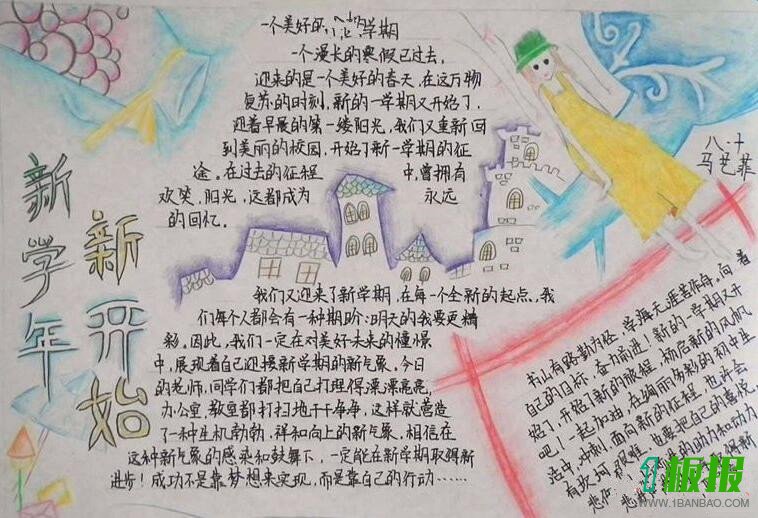 新学年
新开始
一个美好的新学期
一个漫长的寒假已过去,
迎来的是一个美好的春天,在这万物
复苏的时刻,新的一学期又开始了,
迎着早晨的第一缕阳光,我们又重新回
到美丽的校园,开始了新一学期的征
途。在过去的征程中,曾拥有
欢笑,阳光,这都成为永远
的回忆。
八.十
马艺菲
我们又迎来了新学期,在每一个全新的起点,我
们每个人都会有一种期盼:明天的我要更精
彩,因此,我们一定在对美好未来的憧憬
中,展现着自己迎接新学期的新气象,今日
的老师,同学们都把自己打理得漂漂亮亮,
办公室,教室都打扫地干干净净,这样就营造
了一种生机勃勃,祥和向上的新气象,相信在
这种新气象的感染和鼓舞下,一定能在新学期取得新
进步!成功不是靠梦想来实现,而是靠自己的行动……
书山有路勤为径,学海无涯苦作舟。向着
自己的目标,奋力前进!新的一学期又开
始了,开始了新的旅程,扬启新的风帆
吧!一起加油,在绚丽多彩的初中生
活中,冲刺,面向新的征程,也许会
有坎坷,艰难,也要把自己的喜悦,
悲伤
的动力和动力
板报
WWW.1BANBAO.COM